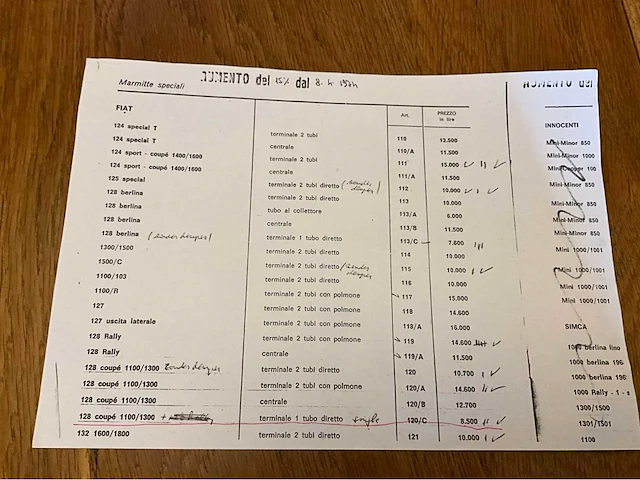 AUMENTO del 15% dal 8.4.1974
AUMENTO del
Marmitte speciali
Art.
PREZZO
in lire
FIAT
124 special T terminale 2 tubi 110 13.500
124 special T centrale 110/A 11.500
124 sport - coupé 1400/1600 terminale 2 tubi 111 15.000
124 sport - coupé 1400/1600 centrale 111/A 11.500
125 special terminale 2 tubi diretto 112 10.000
128 berlina terminale 2 tubi diretto 113 10.000
128 berlina tubo al collettore 113/A 6.000
128 berlina centrale 113/B 11.500
128 berlina terminale 1 tubo diretto 113/C 7.600
1300/1500 terminale 2 tubi diretto 114 10.000
1500/C terminale 2 tubi diretto 115 10.000
1100/103 terminale 2 tubi diretto 116 10.000
1100/R terminale 2 tubi con polmone 117 15.000
127 terminale 2 tubi con polmone 118 14.600
127 uscita laterale terminale 2 tubi con polmone 118/A 16.000
128 Rally terminale 2 tubi con polmone 119 14.600
128 Rally centrale 119/A 11.500
128 coupé 1100/1300 terminale 2 tubi diretto 120 10.700
128 coupé 1100/1300 terminale 2 tubi con polmone 120/A 14.600
128 coupé 1100/1300 centrale 120/B 12.700
128 coupé 1100/1300 terminale 1 tubo diretto single 120/C 8.500
132 1600/1800 terminale 2 tubi diretto 121 10.000
INNOCENTI
Mini-Minor 850
Mini-Minor 1000
Mini-Cooper 100
Mini-Minor 850
Mini-Minor 850
Mini-Minor 850
Mini 1000/1001
Mini 1000/1001
Mini 1000/1001
Mini 1000/1001
SIMCA
1000 berlina fino
1000 berlina 196
1000 berlina 196
1000 Rally - 1 -
1300/1500
1301/1501
1100